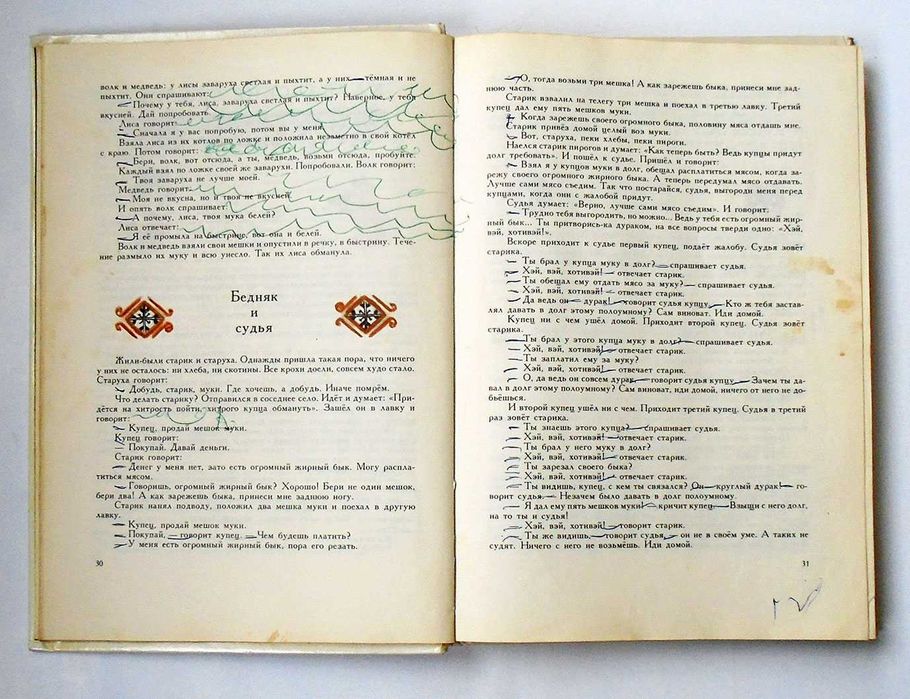 волк и медведь: у лисы заваруха светлая и пыхтит, а у них — тёмная и не
пыхтит. Они спрашивают:
— Почему у тебя, лиса, заваруха светлая и пыхтит? Наверное, у тебя
вкусней. Дай попробовать.
Лиса говорит:
— Сначала я у вас попробую, потом вы у меня.
Взяла лиса из их котлов по ложке и положила незаметно в свой котёл
с краю. Потом говорит:
— Бери, волк, вот отсюда, а ты, медведь, возьми отсюда, пробуйте.
Каждый взял по ложке своей же заварухи. Попробовали. Волк говорит:
— Твоя заваруха не лучше моей.
Медведь говорит:
— Моя не вкусна, но и твоя не вкусней.
И опять волк спрашивает:
— А почему, лиса, твоя мука белей?
Лиса отвечает:
— Я её промыла на быстрине, вот она и белей.
Волк и медведь взяли свои мешки и опустили в речку, в быстрину. Тече-
ние размыло их муку и всю унесло. Так их лиса обманула.
Бедняк
и
судья
Жили-были старик и старуха. Однажды пришла такая пора, что ничего
у них не осталось: ни хлеба, ни скотины. Все крохи доели, совсем худо стало.
Старуха говорит:
— Добудь, старик, муки. Где хочешь, а добудь. Иначе помрём.
Что делать старику? Отправился в соседнее село. Идёт и думает: «При-
дётся на хитрость пойти, хитрого купца обмануть». Зашёл он в лавку и
говорит:
— Купец, продай мешок муки.
Купец говорит:
— Покупай. Давай деньги.
Старик говорит:
— Денег у меня нет, зато есть огромный жирный бык. Могу распла-
титься мясом.
— Говоришь, огромный жирный бык? Хорошо! Бери не один мешок,
бери два! А как зарежешь быка, принеси мне заднюю ногу.
Старик нанял подводу, положил два мешка муки и поехал в другую
лавку.
— Купец, продай мешок муки.
— Покупай, — говорит купец. — Чем будешь платить?
— У меня есть огромный жирный бык, пора его резать.
30
— О, тогда возьми три мешка! А как зарежешь быка, принеси мне зад-
нюю часть.
Старик взвалил на телегу три мешка и поехал в третью лавку. Третий
купец дал ему пять мешков муки.
— Когда зарежешь своего огромного быка, половину мяса отдашь мне.
Старик привёз домой целый воз муки.
— Вот, старуха, пеки хлебы, пеки пироги.
Наелся старик пирогов и думает: «Как теперь быть? Ведь купцы придут
долг требовать». И пошёл к судье. Пришёл и говорит:
— Взял я у купцов муки в долг, обещал расплатиться мясом, когда за-
режу своего огромного жирного быка. А теперь передумал мясо отдавать.
Лучше сами мясо съедим. Так что постарайся, судья, выгороди меня перед
купцами, когда они с жалобой придут.
Судья думает: «Верно, лучше сами мясо съедим». И говорит:
— Трудно тебя выгородить, но можно... Ведь у тебя есть огромный жир-
ный бык... Ты притворись-ка дураком, на все вопросы тверди одно: «Хэй,
вэй, хотивэй!».
Вскоре приходит к судье первый купец, подаёт жалобу. Судья зовёт
старика.
— Ты брал у купца муку в долг? — спрашивает судья.
— Хэй, вэй, хотивэй! — отвечает старик.
— Ты обещал ему отдать мясо за муку? — спрашивает судья.
— Хэй, вэй, хотивэй! — отвечает старик.
— Да ведь он — дурак! — говорит судья купцу. — Кто ж тебя застав-
лял давать в долг этому полоумному? Сам виноват. Иди домой.
Купец ни с чем ушёл домой. Приходит второй купец. Судья зовёт
старика.
— Ты брал у этого купца муку в долг? — спрашивает судья.
— Хэй, вэй, хотивэй! — отвечает старик.
— Ты заплатил ему за муку?
— Хэй, вэй, хотивэй! — отвечает старик.
— О, да ведь он совсем дурак, — говорит судья купцу. — Зачем ты да-
вал в долг этому полоумному? Сам виноват, иди домой, ничего от него не до-
бьёшься.
И второй купец ушёл ни с чем. Приходит третий купец. Судья в третий
раз зовёт старика.
— Ты знаешь этого купца? — спрашивает судья.
— Хэй, вэй, хотивэй! — отвечает старик.
— Ты брал у него муку в долг?
— Хэй, вэй, хотивэй! — отвечает старик.
— Ты зарезал своего быка?
— Хэй, вэй, хотивэй! — отвечает старик.
— Ты видишь, купец, с кем ты связался? Он — круглый дурак! — го-
ворит судья. — Незачем было давать в долг полоумному.
— Я дал ему пять мешков муки! — кричит купец. — Взыщи с него долг,
на то ты и судья!
— Хэй, вэй, хотивэй! — говорит старик.
— Ты же видишь, — говорит судья, — он не в своём уме. А таких не
судят. Ничего с него не возьмёшь. Иди домой.
31